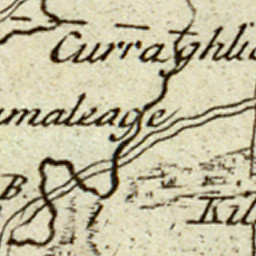 Curraghli
maleage
B.
Kil